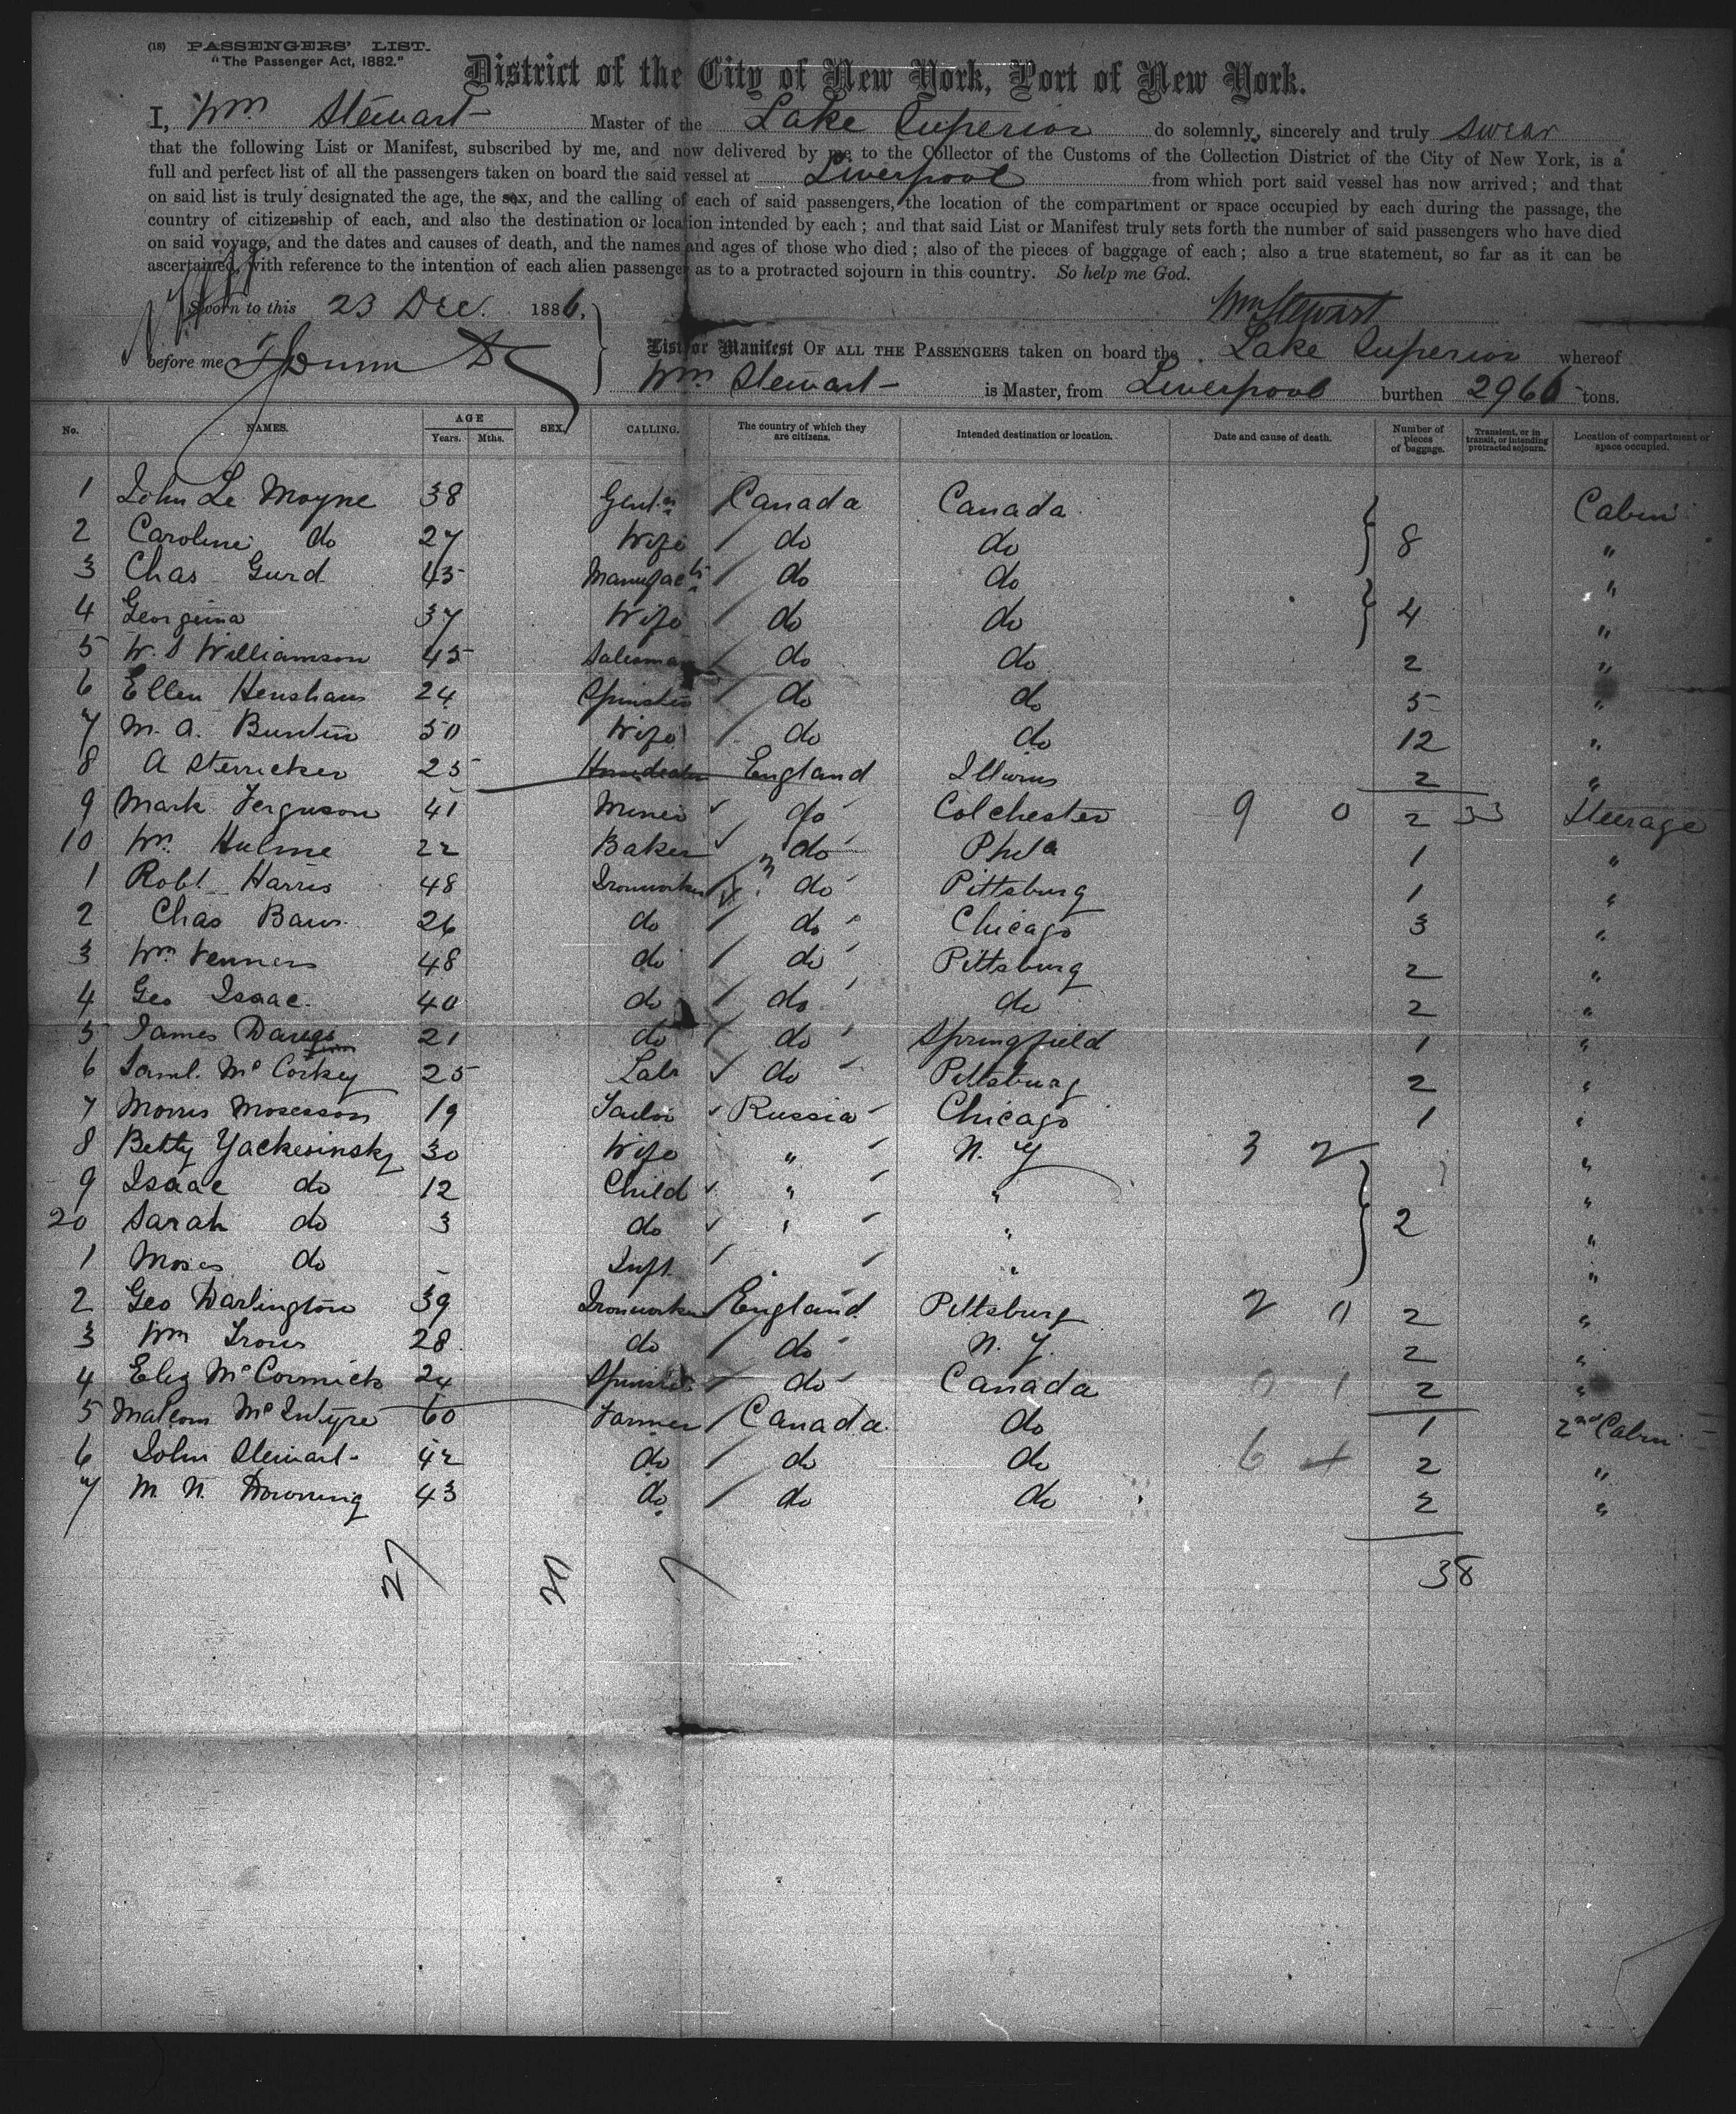 (18) PASSENGERS' LIST.
"The Passenger Act, 1882."
District of the City of New York, Port of New York.
I, Wm Stewart Master of the Lake Superior do solemnly, sincerely and truly swear
that the following List or Manifest, subscribed by me, and now delivered by me to the Collector of the Customs of the Collection District of the City of New York, is a
full and perfect list of all the passengers taken on board the said vessel at Liverpool from which port said vessel has now arrived; and that
on said list is truly designated the age, the sex, and the calling of each of said passengers, the location of the compartment or space occupied by each during the passage, the
country of citizenship of each, and also the destination or location intended by each; and that said List or Manifest truly sets forth the number of said passengers who have died
on said voyage, and the dates and causes of death, and the names and ages of those who died; also of the pieces of baggage of each; also a true statement, so far as it can be
ascertained, with reference to the intention of each alien passenger as to a protracted sojourn in this country. So help me God.
Sworn to this 23 Dec. 1886, Wm Stewart
before me
List or Manifest OF ALL THE PASSENGERS taken on board the Lake Superior whereof
Wm Stewart is Master, from Liverpool burthen 2966 tons.
No. NAMES. AGE Years. Mths. SEX. CALLING. The country of which they are citizens. Intended destination or location. Date and cause of death. Number of pieces of baggage. Transient, or in transit, or intending protracted sojourn. Location of compartment or space occupied.
1 John Le Moyne 38 Gentn Canada Canada Cabin
2 Caroline do 27 Wife do do 8 "
3 Chas Gurd 45 do do "
4 Georgina 37 Wife do do 4 "
5 W. S Williamson 45 Salesman do do 2 "
6 Ellen Henshaw 24 Spinster do do 5 "
7 M. A. Buntin 50 Wife do do 12 "
8 A Sterricker 25 England Illinois 2 "
9 Mark Ferguson 41 Miner do Colchester 9 0 2 33 Steerage
10 Wm. Hulme 22 Baker do Phila 1 "
1 Robt Harris 48 Ironworker do Pittsburg 1 "
2 Chas 26 do do Chicago 3 "
3 Wm Venners 48 do do Pittsburg 2 "
4 Geo Isaac 40 do do do 2 "
5 James 21 do do Springfield 1 "
6 Saml. McCorkey 25 Labr do Pittsburg 2 "
7 Morris Mosesson 19 Tailor Russia Chicago 1 "
8 Betty Yackesinsky 30 Wife " N. Y 3 2 "
9 Isaac do 12 Child " " "
20 Sarah do 3 do " " 2 "
1 Moses do - Inft " " "
2 Geo Darlington 39 Ironworker England Pittsburg 2 11 2 "
3 Wm 28 do do N. Y. 2 "
4 Eliz McCormick 24 Spinster do Canada 0 1 2 "
5 Malcom McIntyre 60 Farmer Canada do 1 2nd Cabin
6 John Stewart 42 do do do 6 4 2 "
7 M. N. Downing 43 do do do 2 "
27 20 7 38